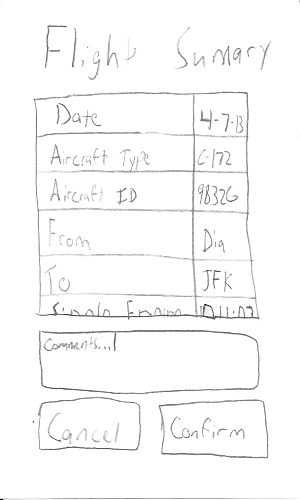 Flight Sumary
Date 4-7-13
Aircraft Type C-172
Aircraft ID 9832G
From Dia
To JFK
Single Engine
Comments...
Cancel Confirm